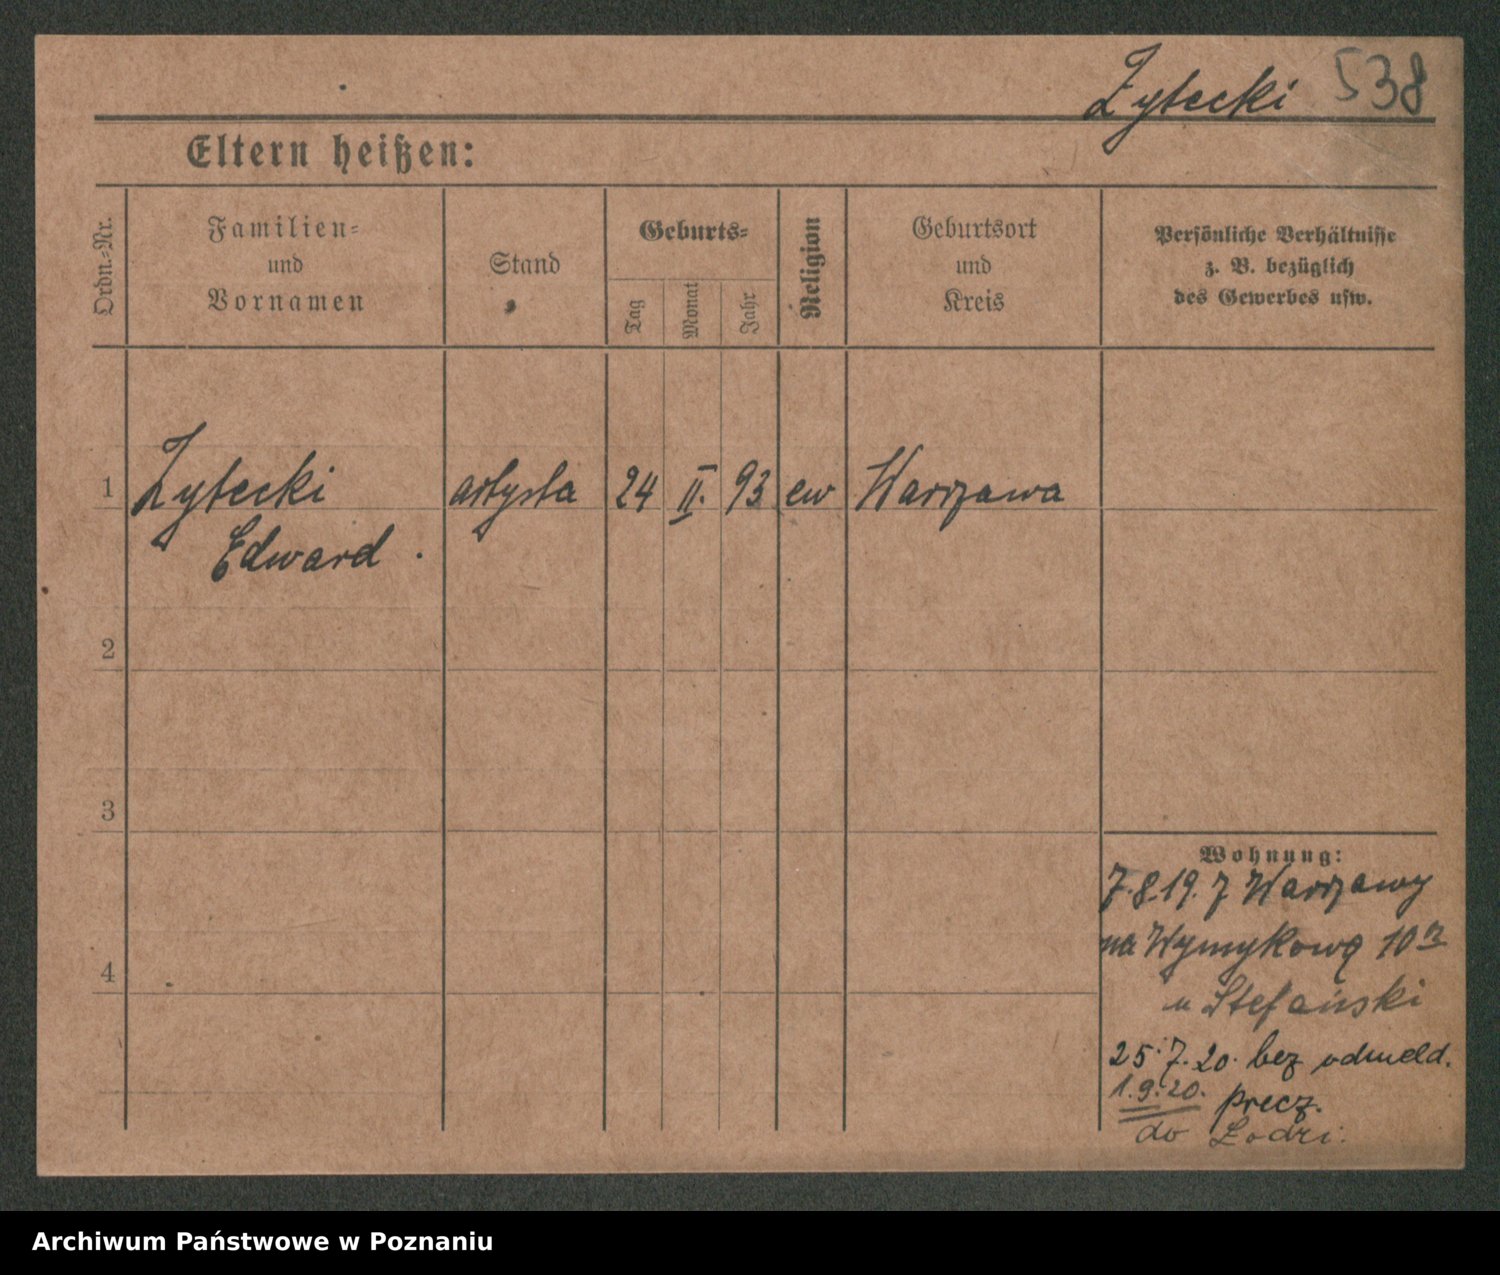 Żytecki 538
Eltern heißen:
Ordn.-Nr.
Familien-
und
Vornamen
Stand
Geburts-
Tag
Monat
Jahr
Religion
Geburtsort
und
Kreis
Persönliche Verhältnisse
z. B. bezüglich
des Gewerbes usw.
1 Żytecki artysta 24 II. 93 ew Warszawa
Edward.
2
3
4
Wohnung:
7.8.19. z Warszawy
na Wymykową 10
u Stefański
25.7.20. bez odmeld.
1.9.20. precz.
do Łodzi.
Archiwum Państwowe w Poznaniu